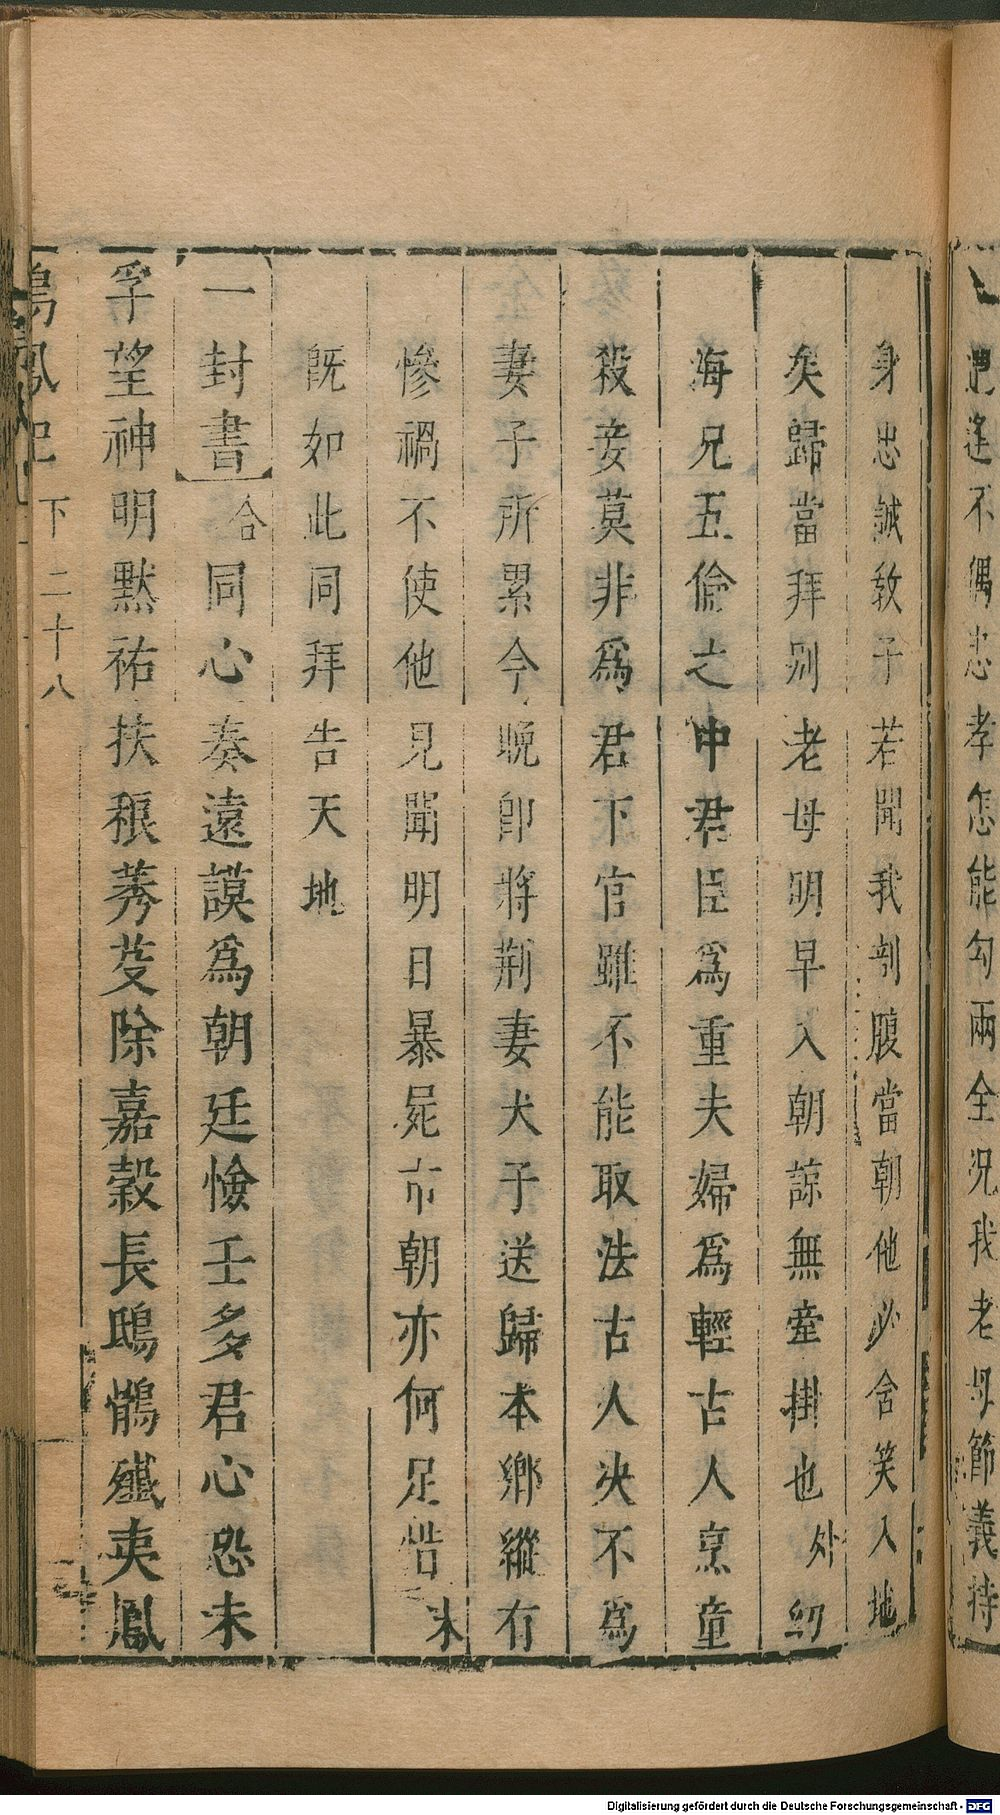 遇逢不偶忠孝怎能勾兩全况我老母節義持
身忠誠教子若聞我剖腹當朝他必含笑入地
矣歸當拜别老母明早入朝諒無牽掛也外紉
海兄五倫之中君臣為重夫婦為輕古人烹童
殺妾莫非為君下官雖不能取法古人决不為
妻子所累今晚卽將荆妻犬子送歸本鄉縱有
慘禍不使他見聞明日暴屍市朝亦何足惜末
旣如此同拜告天地
一封書合同心奏遠謨為朝廷憸壬多君心恐未
孚望神明默祐扶稂莠芟除嘉穀長鴟鵂殲夷鳳
鳴鳳記 下 二十八
Digitalisierung gefördert durch die Deutsche Forschungsgemeinschaft - DFG